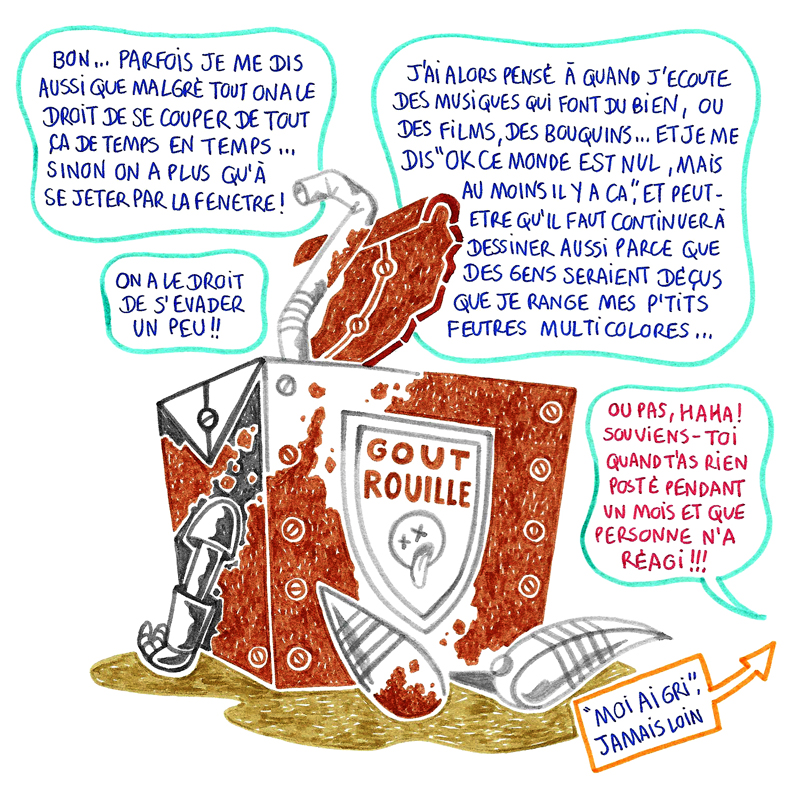 BON... PARFOIS JE ME DIS
AUSSI QUE MALGRÈ TOUT ON A LE
DROIT DE SE COUPER DE TOUT
ÇA DE TEMPS EN TEMPS...
SINON ON A PLUS QU'À
SE JETER PAR LA FENETRE!
J'AI ALORS PENSÉ À QUAND J'ECOUTE
DES MUSIQUES QUI FONT DU BIEN, OU
DES FILMS, DES BOUQUINS... ET JE ME
DIS "OK CE MONDE EST NUL, MAIS
AU MOINS IL Y A CA", ET PEUT-
ETRE QU'IL FAUT CONTINUER À
DESSINER AUSSI PARCE QUE
DES GENS SERAIENT DÉÇUS
QUE JE RANGE MES P'TITS
FEUTRES MULTICOLORES...
ON A LE DROIT
DE S'EVADER
UN PEU!!
OU PAS, HAHA!
SOUVIENS-TOI
QUAND T'AS RIEN
POSTÉ PENDANT
UN MOIS ET QUE
PERSONNE N'A
RÉAGI!!!
GOUT
ROUILLE
"MOI AIGRI",
JAMAIS LOIN